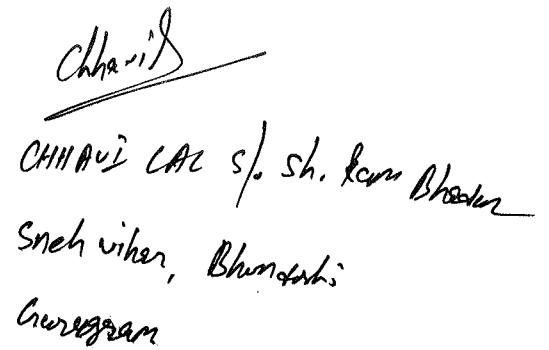 Chhavil
CHHAVI LAL S/. Sh. Ram Bhadur
Sneh vihar, Bhondshi
Gurugram